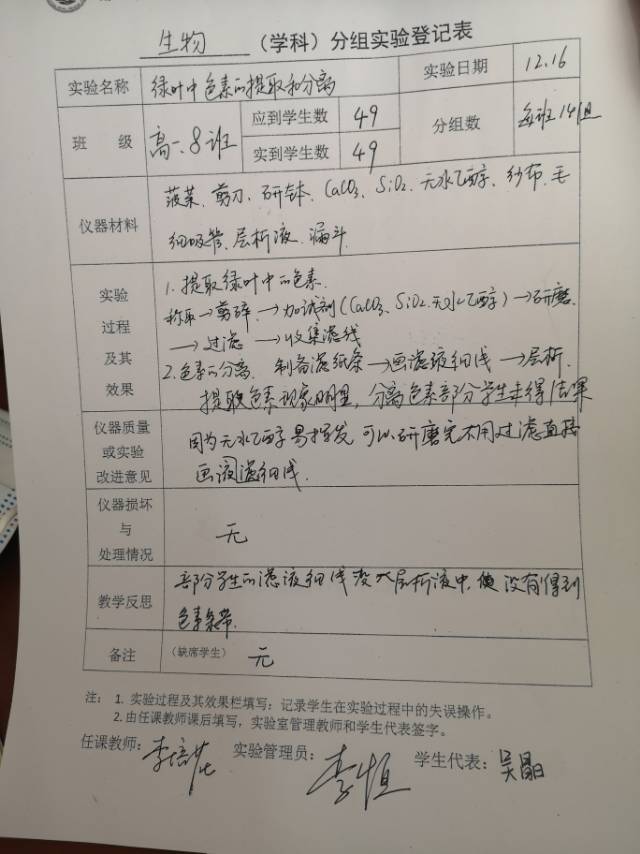 生物（学科）分组实验登记表
实验名称 绿叶中色素的提取和分离 实验日期 12.16
班 级 高一.8班 应到学生数 49 分组数 每班14组
实到学生数 49
仪器材料 菠菜、剪刀、研钵、CaCO₃、SiO₂、无水乙醇、纱布、毛
细吸管、层析液、漏斗
实验
过程
及其
效果
1. 提取绿叶中的色素.
称取→剪碎→加试剂(CaCO₃、SiO₂.无水乙醇)→研磨.
→过滤→收集滤线
2.色素的分离. 制备滤纸条→画滤液细线→层析.
提取色素现象明显,分离色素部分学生未得结果
仪器质量
或实验
改进意见
因为无水乙醇易挥发,可以研磨完不用过滤直接
画滤细线.
仪器损坏
与
处理情况
无
教学反思 部分学生的滤液细线没入层析液中,使没有得到
色素条带.
备注 （缺席学生） 无
注： 1. 实验过程及其效果栏填写：记录学生在实验过程中的失误操作。
2.由任课教师课后填写，实验室管理教师和学生代表签字。
任课教师： 实验管理员：李恒 学生代表：吴晶